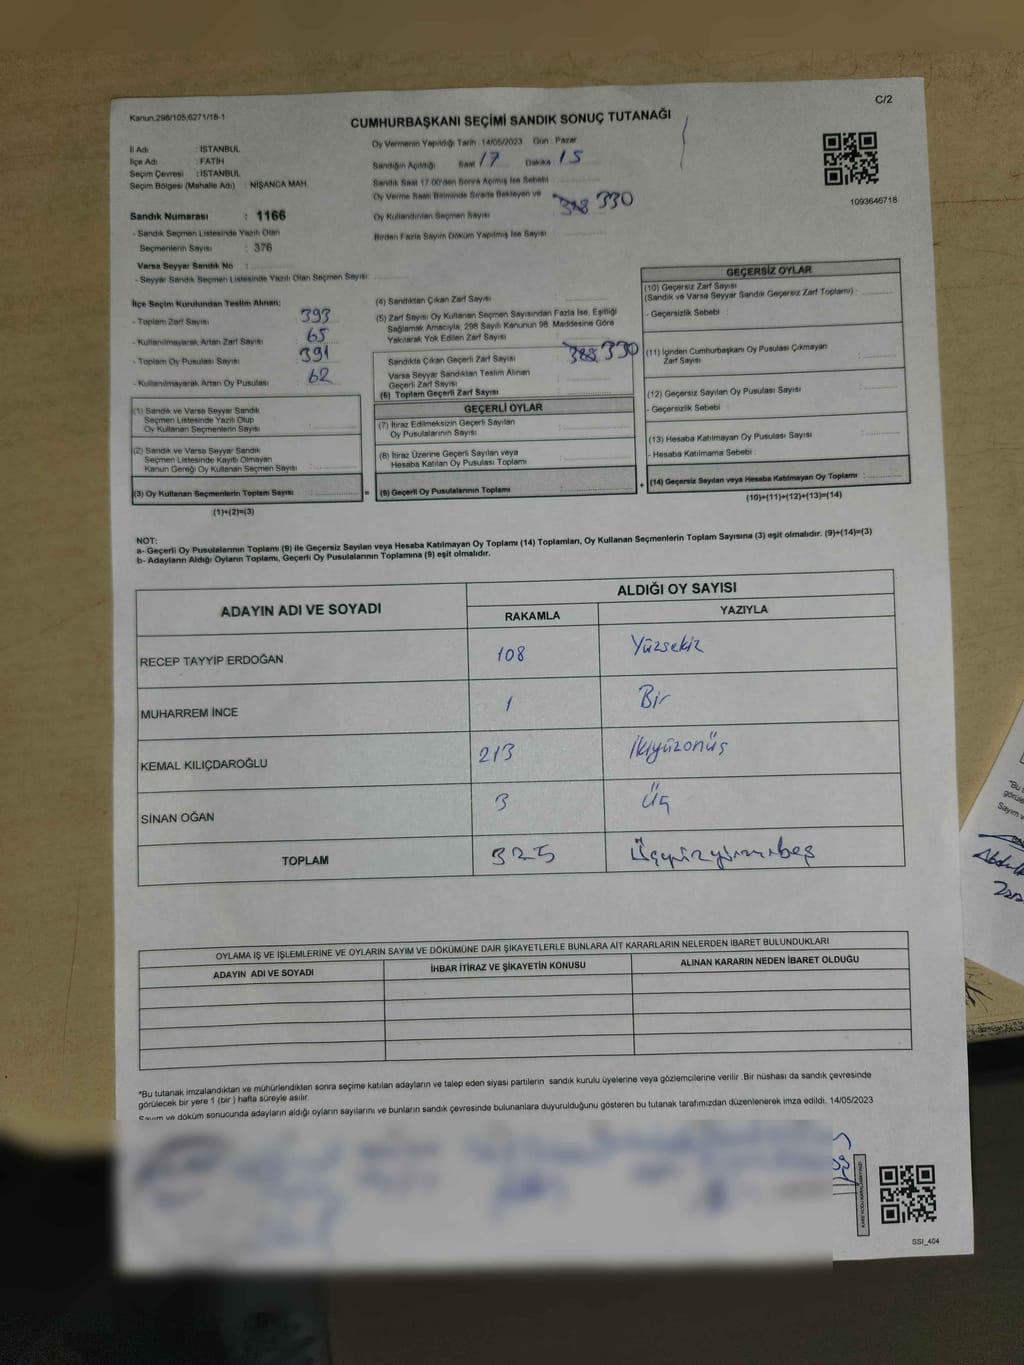 C/2
Kanun,298/105,6271/18-1
CUMHURBAŞKANI SEÇİMİ SANDIK SONUÇ TUTANAĞI
1093646718
İl Adı : İSTANBUL
İlçe Adı : FATİH
Seçim Çevresi : İSTANBUL
Seçim Bölgesi (Mahalle Adı) : NİŞANCA MAH.
Oy Vermenin Yapıldığı Tarih : 14/05/2023 Gün : Pazar
Sandığın Açıldığı Saat 17 Dakika 15
Sandık Saat 17.00'den Sonra Açılmış İse Sebebi
Oy Verme Saati Bitiminde Sırada Bekleyen ve
Oy Kullandırılan Seçmen Sayısı 328 330
Birden Fazla Sayım Döküm Yapılmış İse Sayısı
Sandık Numarası : 1166
- Sandık Seçmen Listesinde Yazılı Olan
Seçmenlerin Sayısı : 376
Varsa Seyyar Sandık No :
- Seyyar Sandık Seçmen Listesinde Yazılı Olan Seçmen Sayısı
İlçe Seçim Kurulundan Teslim Alınan;
- Toplam Zarf Sayısı : 393
- Kullanılmayarak Artan Zarf Sayısı : 65
- Toplam Oy Pusulası Sayısı : 391
- Kullanılmayarak Artan Oy Pusulası : 62
(1) Sandık ve Varsa Seyyar Sandık
Seçmen Listesinde Yazılı Olup
Oy Kullanan Seçmenlerin Sayısı :
(2) Sandık ve Varsa Seyyar Sandık
Seçmen Listesinde Kayıtlı Olmayan
Kanun Gereği Oy Kullanan Seçmen Sayısı :
(3) Oy Kullanan Seçmenlerin Toplam Sayısı :
(1)+(2)=(3)
(4) Sandıktan Çıkan Zarf Sayısı :
(5) Zarf Sayısı Oy Kullanan Seçmen Sayısından Fazla İse, Eşitliği
Sağlamak Amacıyla, 298 Sayılı Kanunun 98. Maddesine Göre
Yakılarak Yok Edilen Zarf Sayısı :
Sandıkta Çıkan Geçerli Zarf Sayısı : 328 330
Varsa Seyyar Sandıktan Teslim Alınan
Geçerli Zarf Sayısı
(6) Toplam Geçerli Zarf Sayısı
GEÇERLİ OYLAR
(7) İtiraz Edilmeksizin Geçerli Sayılan
Oy Pusulalarının Sayısı :
(8) İtiraz Üzerine Geçerli Sayılan veya
Hesaba Katılan Oy Pusulası Toplamı :
= (9) Geçerli Oy Pusulalarının Toplamı :
GEÇERSİZ OYLAR
(10) Geçersiz Zarf Sayısı
(Sandık ve Varsa Seyyar Sandık Geçersiz Zarf Toplamı) :
- Geçersizlik Sebebi :
(11) İçinden Cumhurbaşkanı Oy Pusulası Çıkmayan
Zarf Sayısı :
(12) Geçersiz Sayılan Oy Pusulası Sayısı :
- Geçersizlik Sebebi :
(13) Hesaba Katılmayan Oy Pusulası Sayısı :
- Hesaba Katılmama Sebebi :
+ (14) Geçersiz Sayılan veya Hesaba Katılmayan Oy Toplamı :
(10)+(11)+(12)+(13)=(14)
NOT:
a- Geçerli Oy Pusulalarının Toplamı (9) ile Geçersiz Sayılan veya Hesaba Katılmayan Oy Toplamı (14) Toplamları, Oy Kullanan Seçmenlerin Toplam Sayısına (3) eşit olmalıdır. (9)+(14)=(3)
b- Adayların Aldığı Oyların Toplamı, Geçerli Oy Pusulalarının Toplamına (9) eşit olmalıdır.
ADAYIN ADI VE SOYADI ALDIĞI OY SAYISI
RAKAMLA YAZIYLA
RECEP TAYYİP ERDOĞAN 108 Yüzsekiz
MUHARREM İNCE 1 Bir
KEMAL KILIÇDAROĞLU 213 İkiyüzonüç
SİNAN OĞAN 3 Üç
TOPLAM 325 Üçyüzyirmibeş
OYLAMA İŞ VE İŞLEMLERİNE VE OYLARIN SAYIM VE DÖKÜMÜNE DAİR ŞİKAYETLERLE BUNLARA AİT KARARLARIN NELERDEN İBARET BULUNDUKLARI
ADAYIN ADI VE SOYADI İHBAR İTİRAZ VE ŞİKAYETİN KONUSU ALINAN KARARIN NEDEN İBARET OLDUĞU
*Bu tutanak imzalandıktan ve mühürlendikten sonra seçime katılan adayların ve talep eden siyasi partilerin sandık kurulu üyelerine veya gözlemcilerine verilir .Bir nüshası da sandık çevresinde
görülecek bir yere 1 (bir ) hafta süreyle asılır.
Sayım ve döküm sonucunda adayların aldığı oyların sayılarını ve bunların sandık çevresinde bulunanlara duyurulduğunu gösteren bu tutanak tarafımızdan düzenlenerek imza edildi. 14/05/2023
SSI_404
*Bu